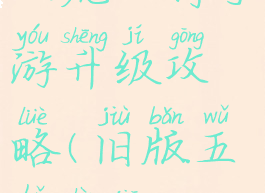 yóu shēng jí gōng
游升级攻
lüè jiù bǎn wǔ
略(旧版五